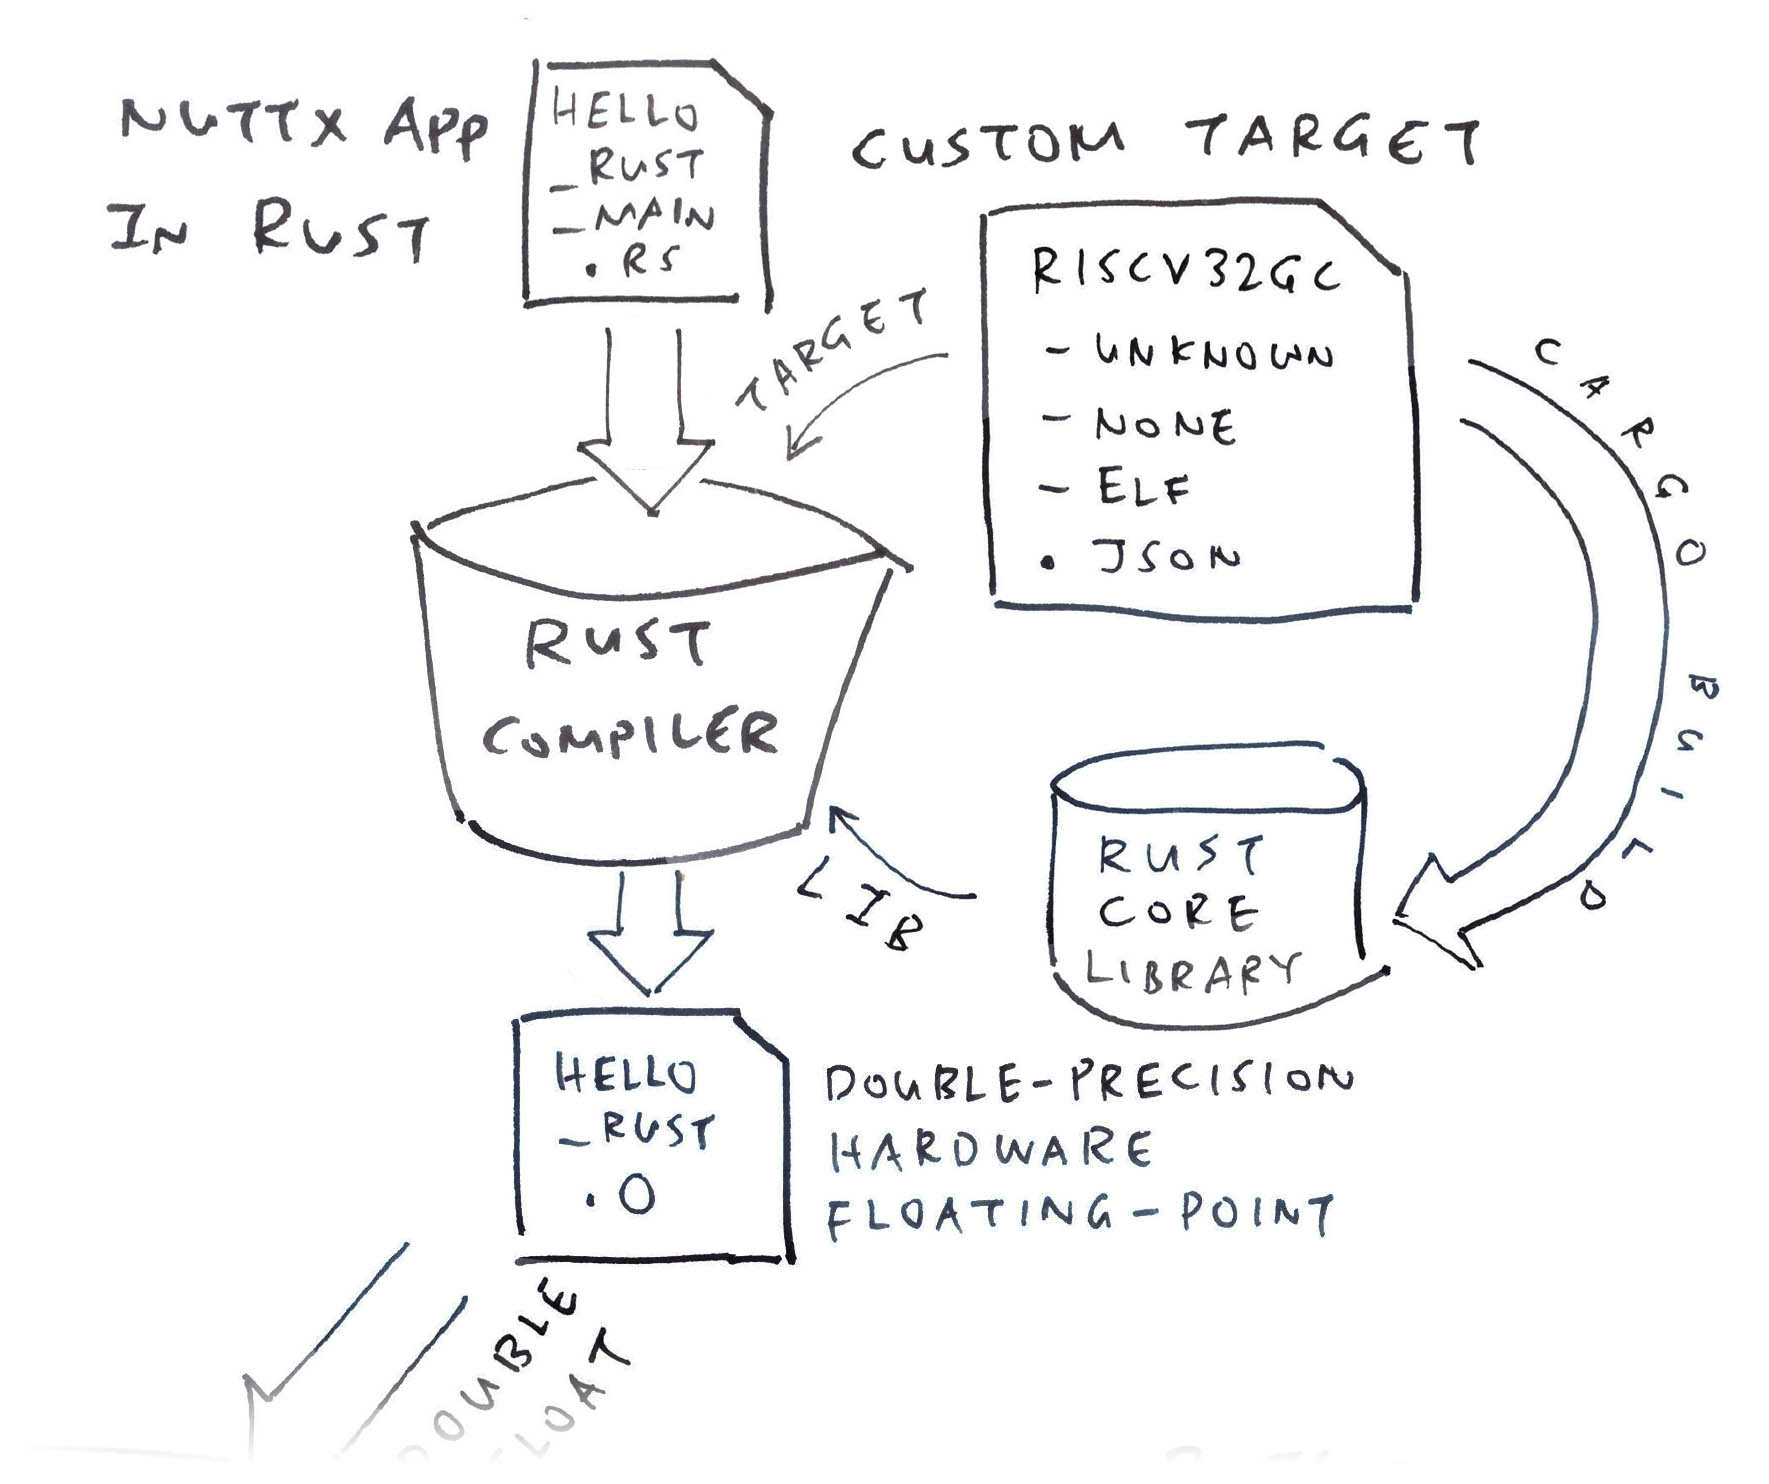 NUTTX APP
IN RUST
HELLO
_RUST
_MAIN
.RS
CUSTOM TARGET
RISCV32GC
- UNKNOWN
- NONE
- ELF
. JSON
TARGET
CARGO BUILD
RUST
COMPILER
LIB
RUST
CORE
LIBRARY
HELLO
_RUST
.O
DOUBLE-PRECISION
HARDWARE
FLOATING-POINT
DOUBLE
FLOAT